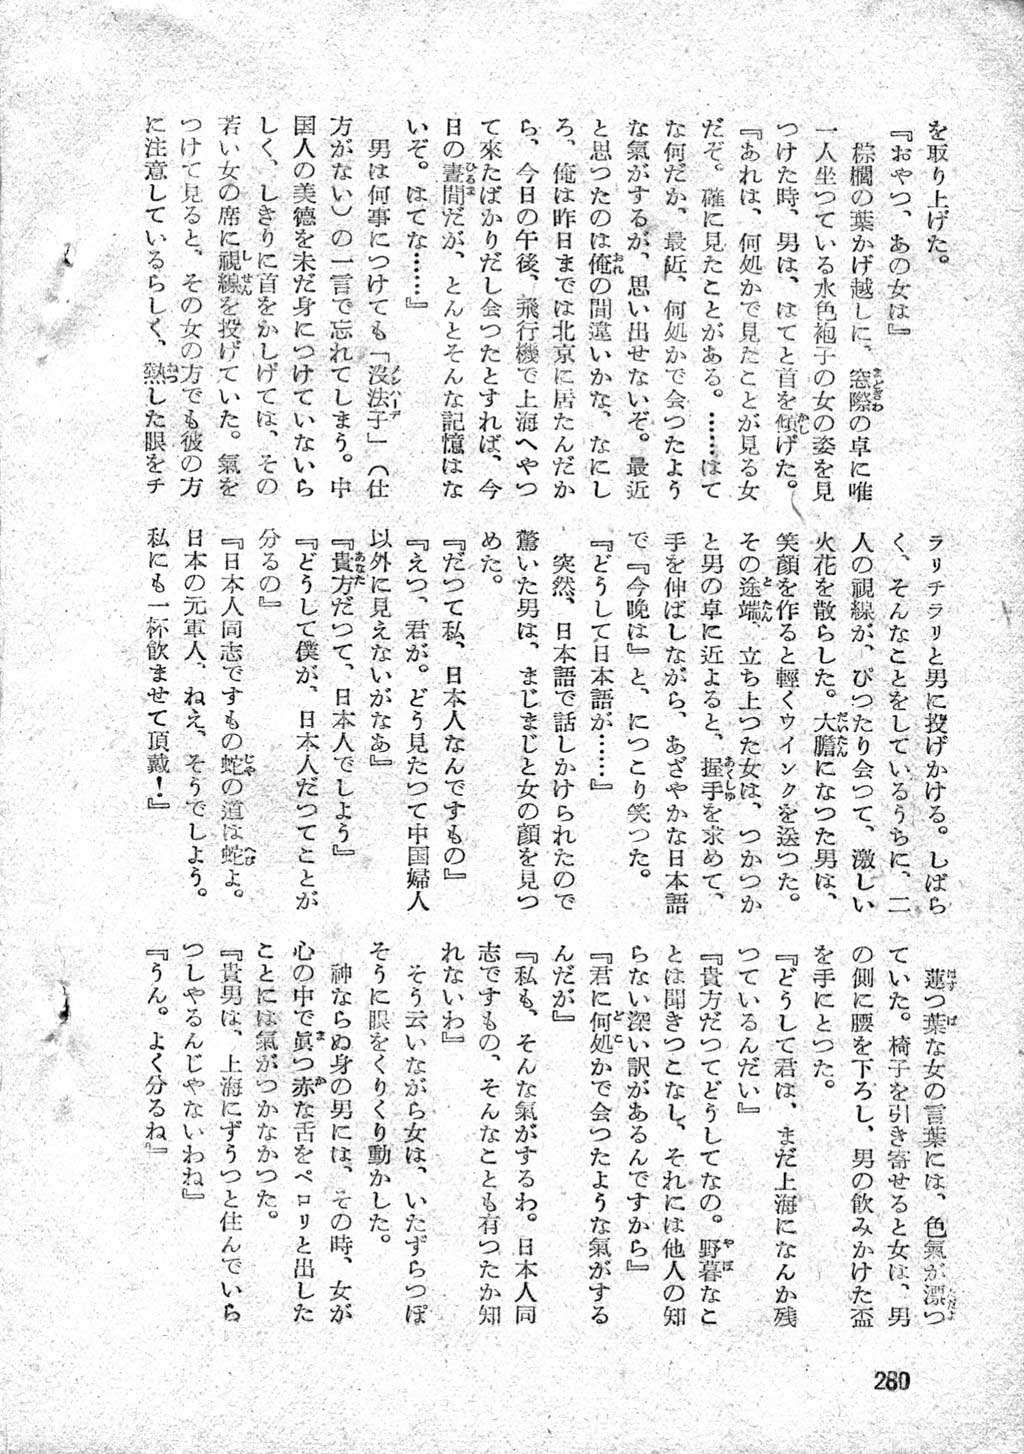 を取り上げた。
『おやつ、あの女は』
棕櫚の葉かげ越しに、窓際の卓に唯
一人坐つている水色袍子の女の姿を見
つけた時、男は、はてと首を傾げた。
『あれは、何処かで見たことが見る女
だぞ。確に見たことがある。……はて
な何だか、最近、何処かで会つたよう
な氣がするが、思い出せないぞ。最近
と思つたのは俺の間違いかな、なにし
ろ、俺は昨日までは北京に居たんだか
ら、今日の午後、飛行機で上海へやつ
て來たばかりだし会つたとすれば、今
日の晝間だが、とんとそんな記憶はな
いぞ。はてな……』
男は何事につけても「沒法子」（仕
方がない）の一言で忘れてしまう。中
国人の美德を未だ身につけていないら
しく、しきりに首をかしげては、その
若い女の席に視線を投げていた。氣を
つけて見ると、その女の方でも彼の方
に注意しているらしく、熱した眼をチ
ラリチラリと男に投げかける。しばら
く、そんなことをしているうちに、二
人の視線が、ぴつたり会つて、激しい
火花を散らした。大膽になつた男は、
笑顔を作ると輕くウインクを送つた。
その途端、立ち上つた女は、つかつか
と男の卓に近よると、握手を求めて、
手を伸ばしながら、あざやかな日本語
で『今晩は』と、につこり笑つた。
『どうして日本語が……』
突然、日本語で話しかけられたので
驚いた男は、まじまじと女の顔を見つ
めた。
『だつて私、日本人なんですもの』
『えつ、君が。どう見たつて中国婦人
以外に見えないがなあ』
『貴方だつて、日本人でしよう』
『どうして僕が、日本人だつてことが
分るの』
『日本人同志ですもの蛇の道は蛇よ。
日本の元軍人、ねえ、そうでしよう。
私にも一杯飲ませて頂戴！』
蓮つ葉な女の言葉には、色氣が漂つ
ていた。椅子を引き寄せると女は、男
の側に腰を下ろし、男の飲みかけた盃
を手にとつた。
『どうして君は、まだ上海になんか残
つているんだい』
『貴方だつてどうしてなの。野暮なこ
とは聞きつこなし、それには他人の知
らない深い訳があるんですから』
『君に何処かで会つたような氣がする
んだが』
『私も、そんな氣がするわ。日本人同
志ですもの、そんなことも有つたか知
れないわ』
そう云いながら女は、いたずらつぽ
そうに眼をくりくり動かした。
神ならぬ身の男には、その時、女が
心の中で眞つ赤な舌をペロリと出した
ことには氣がつかなかつた。
『貴男は、上海にずうつと住んでいら
つしやるんじやないわね』
『うん。よく分るね』
280